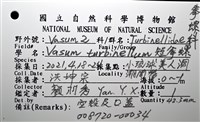 國立自然科學博物館
NATIONAL MUSEUM OF NATURAL SCIENCE
野外號: Vasum 2 科/群名: Turbinellidae
Field# Family/Group
學名: Vasum turbinellum 短拳螺
Species
採集日: 2021.4.13 採集地: 小琉球美人洞
Coll. Date Locality 潮間帶 0~1m
採集者: 洪坤宗
Collector
鑑定者: 賴利秀 Yan YX
備註(Remarks): 空殼及口蓋 42.3mm
008920-00034